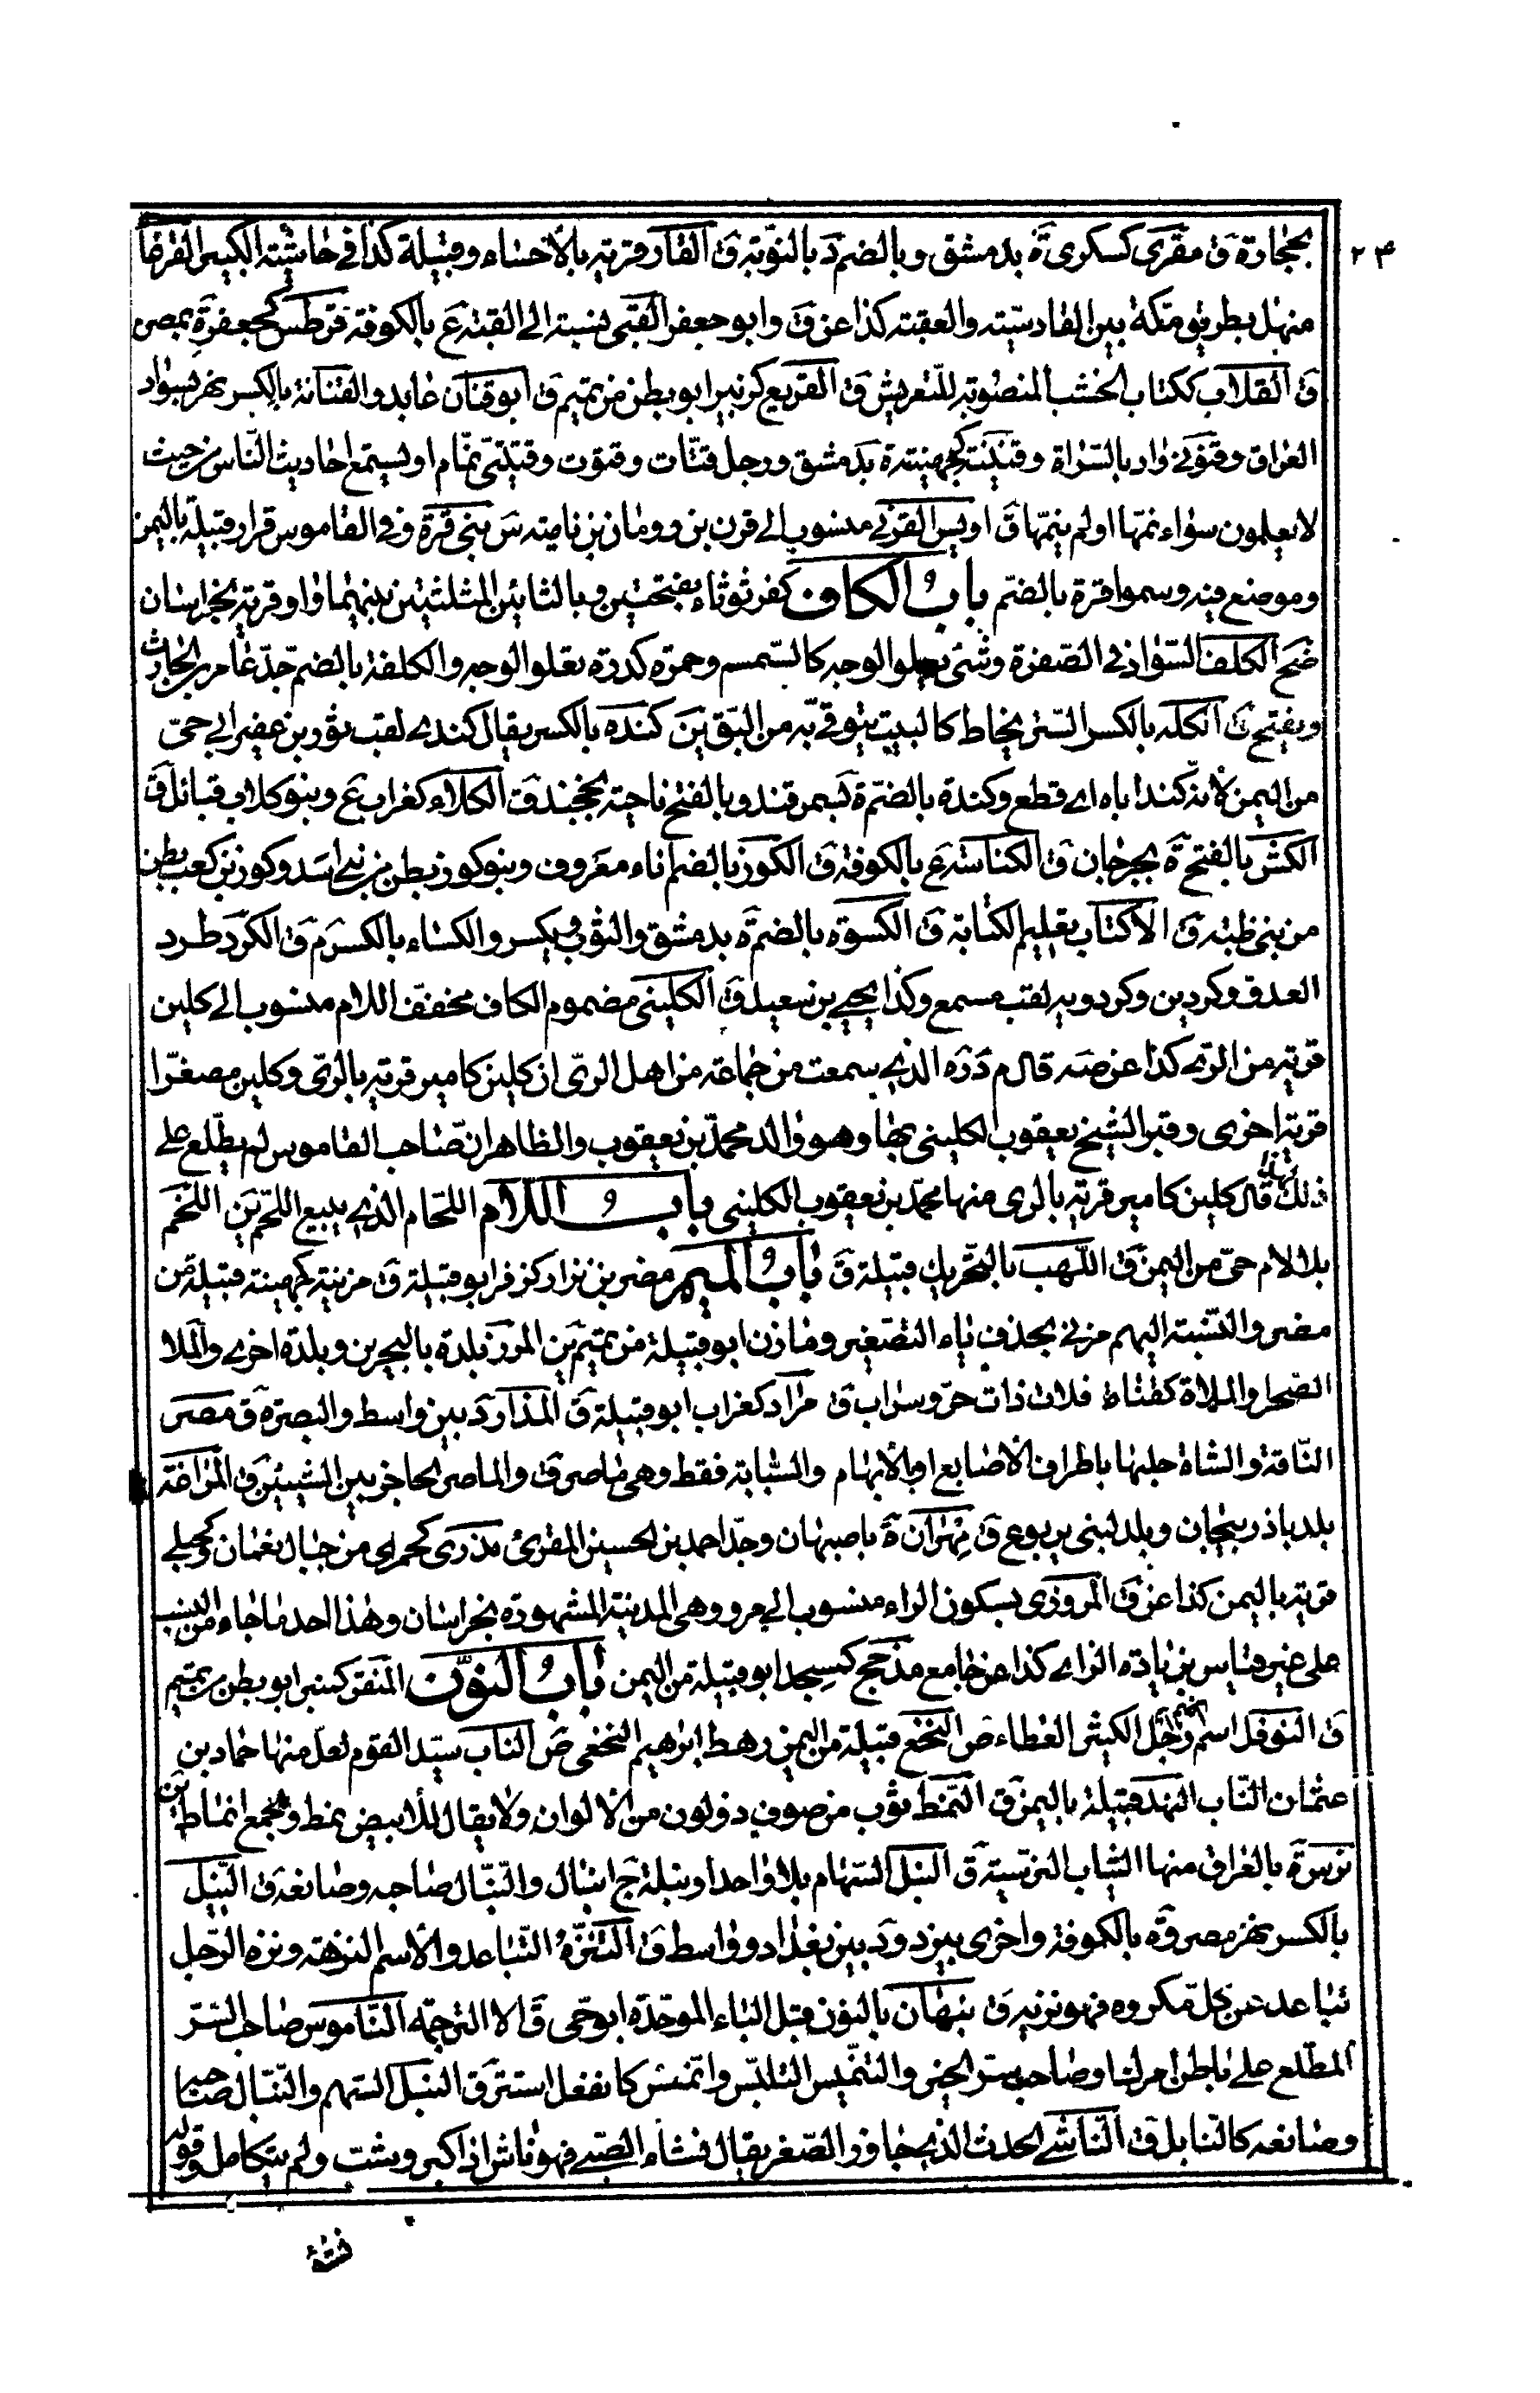 ٢٤
بحجارة ق مقرى كسكرى ة بدمشق وبالضم د بالنوبة ق القار قرية بالأحساء وقبيلة كذا في حاشية الكبير القرعا
منهل بطريق مكة بين القادسية والعقبة كذا عن ق وابو جعفر القبى نسبة الى القبة ع بالكوفة قرطس كجعفر ة بمصر
ق القلاب ككتاب الخشب المنصوبة للتعريش ق القريع كزبير ابو بطن من تميم ق ابو قنان عابد والقنانة بالكسر نهر بسواد
العراق وقنونى واد بالسراة وقنينة كجهينة ة بدمشق ورجل قتات وقتوت وقتيتى نمام او يستمع احاديث الناس من حيث
لا يعلمون سواء نمها او لم ينمها ق اويس القرنى منسوب الى قرن بن رومان بن ناجية س بنى قرة ق وفى القاموس قرار قبيلة باليمن
وموضع فيه وسموا قرة بالضم باب الكاف كفرتوثاء بفتحتين وبالثائين المثلثتين بينهما واو قرية بخراسان
ضح الكلف السواد في الصفرة وشئ يعلو الوجه كالسمسم وحمرة كدرة تعلو الوجه والكلفة بالضم جد عامر بن الحارث
ويفتح ق الكله بالكسر الستر يخاط كالبيت يتوقى به من البق ين كندة بالكسر يقال كندى لقب ثور بن عفير ابى حى
من اليمن لأنه كند اباه اى قطع وكندة بالضم ة بسمرقند وبالفتح ناحية بخجند ق الكلاء كغراب ع وبنو كلاب قبائل ق
الكش بالفتح ة بجرجان ق الكناسة ع بالكوفة ق الكوز بالضم اناء معروف وبنو كوز بطن من بنى اسد وكوز بن كعب بطن
من بنى ظبة ق الاكتاب تعليم الكتابة ق الكسوة بالضم ة بدمشق والثوب ويكسر والكساء بالكسر م ق الكرد طرد
العدو وكردين وكردويه لقب مسمع وكذا يحيى بن سعيد ق الكلينى مضموم الكاف مخفف اللام منسوب الى كلين
قرية من الرى كذا عن صه قال م د ره الذى سمعت من جماعة من اهل الرى ان كلين كامير قرية بالرى وكلين مصغرا
قرية اخرى وقبر الشيخ يعقوب الكلينى بها وهو والد محمد بن يعقوب والظاهر ان صاحب القاموس لم يطلع على
ذلك قال كلين كامير قرية بالرى منها محمد بن يعقوب الكلينى باب اللام اللحام الذى يبيع اللحم ين اللخم
بلا لام حى من اليمن ق اللهب بالتحريك قبيلة ق باب الميم مضر بن نزار كزفر ابو قبيلة ق مزينة كجهينة قبيلة من
مضر والنسبة اليهم مزنى بحذف ياء التصغير ومازن ابو قبيلة من تميم ين المرز بلدة بالبحرين وبلدة اخرى والملا
الصحرا والملاة كقناة فلاة ذات حر وسراب ق مراد كغراب ابو قبيلة ق المذار د بين واسط والبصرة ق مصر
الناقة والشاة حلبها باطراف الأصابع او بالأبهام والسبابة فقط وهى ماصر ق والماصر الحاجز بين الشيئين ق المراغة
بلد باذربيجان وبلد لبنى يربوع ق مهران ة باصبهان وجد احمد بن الحسين المقرئ مذرى كحمرى من جبال نعمان وكجبلى
قرية باليمن كذا عن ق المروزى بسكون الراء منسوب الى مرو وهى المدينة المشهورة بخراسان وهذا احد ما جاء من النسب
على غير قياس بزيادة الزاى كذا عن جامع مذحج كمسجد ابو قبيلة من اليمن باب النون المنقر كمنبر ابو بطن من تميم
ق النوفل اسم رجل الكثير العطاء ض النخع قبيلة من اليمن رهط ابرهيم النخعى ض الناب سيد القوم لعل منها حماد بن
عثمان الناب النهد قبيلة باليمن ق النمط ثوب من صوف ذو لون من الالوان ولا يقال للأبيض نمط ويجمع انماط ين
نرس ة بالعراق منها الثياب النرسية ق النبل السهام بلا واحد او نبلة ج انبال والنبال صاحبه وصانعه ق النيل
بالكسر نهر مصر وة بالكوفة واخرى بيزد ود بين بغداد وواسط ق التنزه التباعد والاسم النزهة ونزه الرجل
تباعد عن كل مكروه فهو نزيه ق نبهان بالنون قبل الباء الموحدة ابو حى ق الا الترجمة الناموس صاحب السر
المطلع على باطن امرك او صاحب سر الخير والتنميس التلبيس وانمس كانفعل استتر ق النبل السهم والنبال صاحبه
وصانعه كالنابل ق الناشى الحدث الذى جاوز الصغر يقال نشاء الصبى فهو ناش اذا كبر وشب ولم يتكامل وقوله